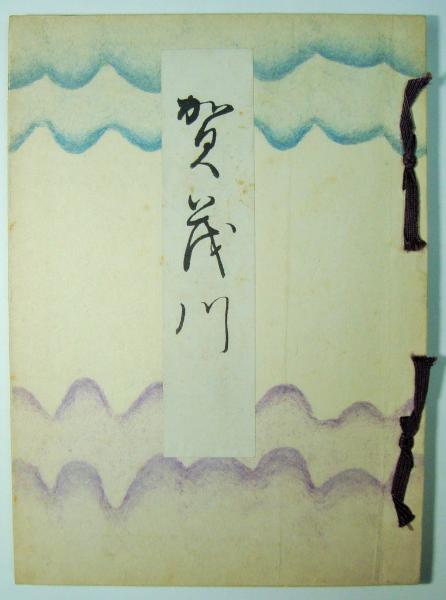 賀茂川